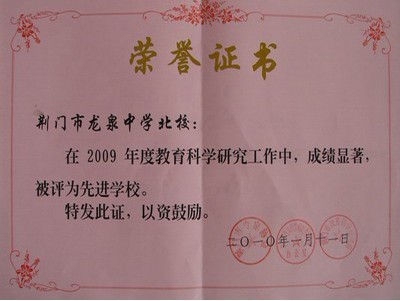 荣誉证书
荆门市龙泉中学北校：
在 2009 年度教育科学研究工作中，成绩显著，
被评为先进学校。
特发此证，以资鼓励。
二〇一〇年一月十一日